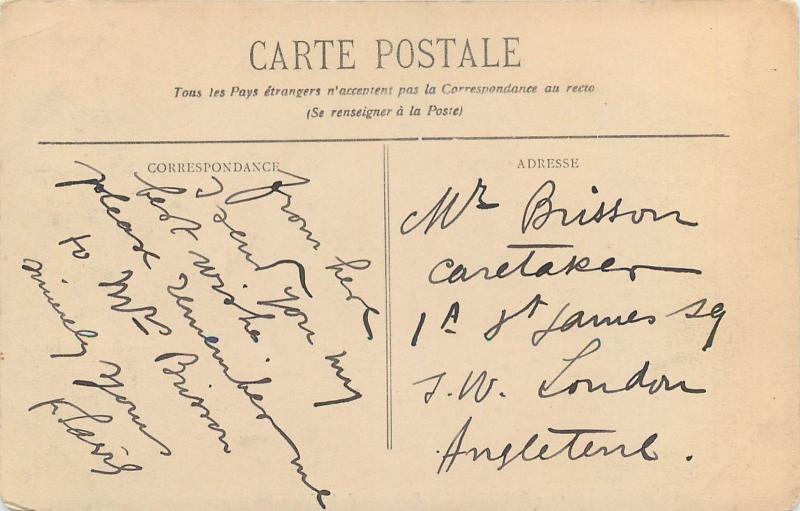 CARTE POSTALE
Tous les Pays étrangers n'acceptent pas la Correspondance au recto
(Se renseigner à la Poste)
CORRESPONDANCE
ADRESSE
from here
I send you my
best wishe.
please remember me
to Mrs Brisson
sincerely yours
Mr Brisson
Caretaker
1A St James Sq
S.W. London
Angleterre.